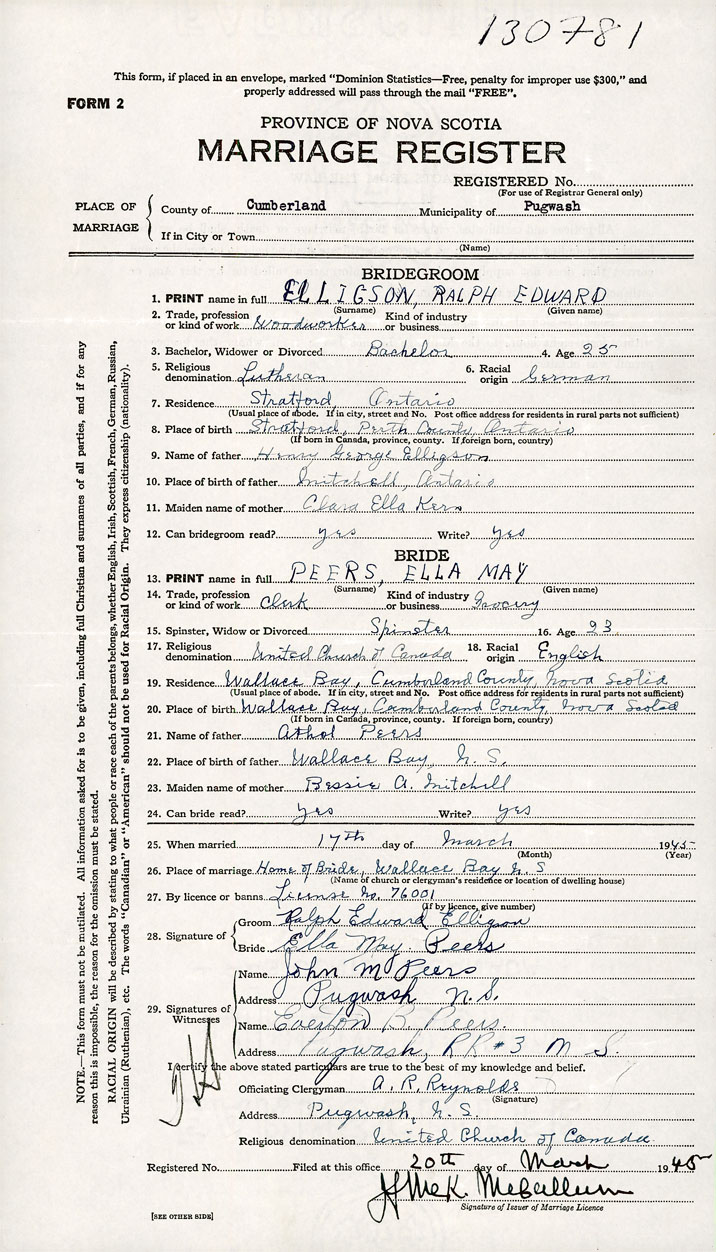 130781
This form, if placed in an envelope, marked "Dominion Statistics—Free, penalty for improper use $300," and
properly addressed will pass through the mail "FREE".
FORM 2
PROVINCE OF NOVA SCOTIA
MARRIAGE REGISTER
REGISTERED No.
(For use of Registrar General only)
PLACE OF MARRIAGE
County of Cumberland Municipality of Pugwash
If in City or Town
(Name)
BRIDEGROOM
1. PRINT name in full ELLIGSON, RALPH EDWARD
(Surname) (Given name)
2. Trade, profession or kind of work Woodworker Kind of industry or business
3. Bachelor, Widower or Divorced Bachelor 4. Age 25
5. Religious denomination Lutheran 6. Racial origin German
7. Residence Stratford, Ontario
(Usual place of abode. If in city, street and No. Post office address for residents in rural parts not sufficient)
8. Place of birth Stratford, Perth County, Ontario
(If born in Canada, province, county. If foreign born, country)
9. Name of father Henry George Elligson
10. Place of birth of father Mitchell, Ontario
11. Maiden name of mother Clara Ella Kern
12. Can bridegroom read? yes Write? yes
BRIDE
13. PRINT name in full PEERS, ELLA MAY
(Surname) (Given name)
14. Trade, profession or kind of work Clerk Kind of industry or business Grocery
15. Spinster, Widow or Divorced Spinster 16. Age 23
17. Religious denomination United Church of Canada 18. Racial origin English
19. Residence Wallace Bay, Cumberland County, Nova Scotia
(Usual place of abode. If in city, street and No. Post office address for residents in rural parts not sufficient)
20. Place of birth Wallace Bay, Cumberland County, Nova Scotia
(If born in Canada, province, county. If foreign born, country)
21. Name of father Athol Peers
22. Place of birth of father Wallace Bay, N. S.
23. Maiden name of mother Bessie A. Mitchell
24. Can bride read? yes Write? yes
25. When married 17th day of March 1945
(Month) (Year)
26. Place of marriage Home of Bride, Wallace Bay N. S
(Name of church or clergyman's residence or location of dwelling house)
27. By licence or banns License No. 76001
(If by licence, give number)
28. Signature of
Groom Ralph Edward Elligson
Bride Ella May Peers
29. Signatures of Witnesses
Name John M Peers
Address Pugwash N. S.
Name Everton B. Peers.
Address Pugwash, RR #3 N S.
I certify the above stated particulars are true to the best of my knowledge and belief.
Officiating Clergyman A. R. Reynolds
(Signature)
Address Pugwash, N. S.
Religious denomination United Church of Canada
Registered No. Filed at this office 20th day of March 1945
Signature of Issuer of Marriage Licence
[SEE OTHER SIDE]
NOTE.—This form must not be mutilated. All information asked for is to be given, including full Christian and surnames of all parties, and if for any
reason this is impossible, the reason for the omission must be stated.
RACIAL ORIGIN will be described by stating to what people or race each of the parents belongs, whether English, Irish, Scottish, French, German, Russian,
Ukrainian (Ruthenian), etc. The words "Canadian" or "American" should not be used for Racial Origin. They express citizenship (nationality).